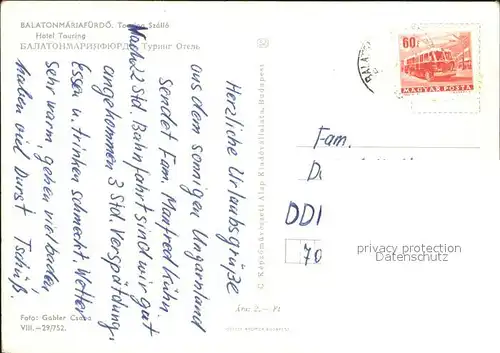 BALATONMÁRIAFÜRDŐ. Touring Szálló
Hotel Touring
БАЛАТОНМАРИЯФЮРДЁ Туринг Отель
Herzliche Urlaubsgrüße
aus dem sonnigen Ungarnland
sendet Fam. Manfred Kühn.
Nach 22 Std. Bahnfahrt sind wir gut
angekommen 3 Std. Verspätung,
Essen u. trinken schmeckt. Wetter
sehr warm, gehen viel baden
haben viel Durst Tschüß.
Foto: Gabler Csaba
VIII.—29/752.
C. Képzőművészeti Alap Kiadóvállalata, Budapest
Ára: 2.— Ft
60f
MAGYAR POSTA
BALATO
Fam.
D
DD
70
privacy protection
Datenschutz